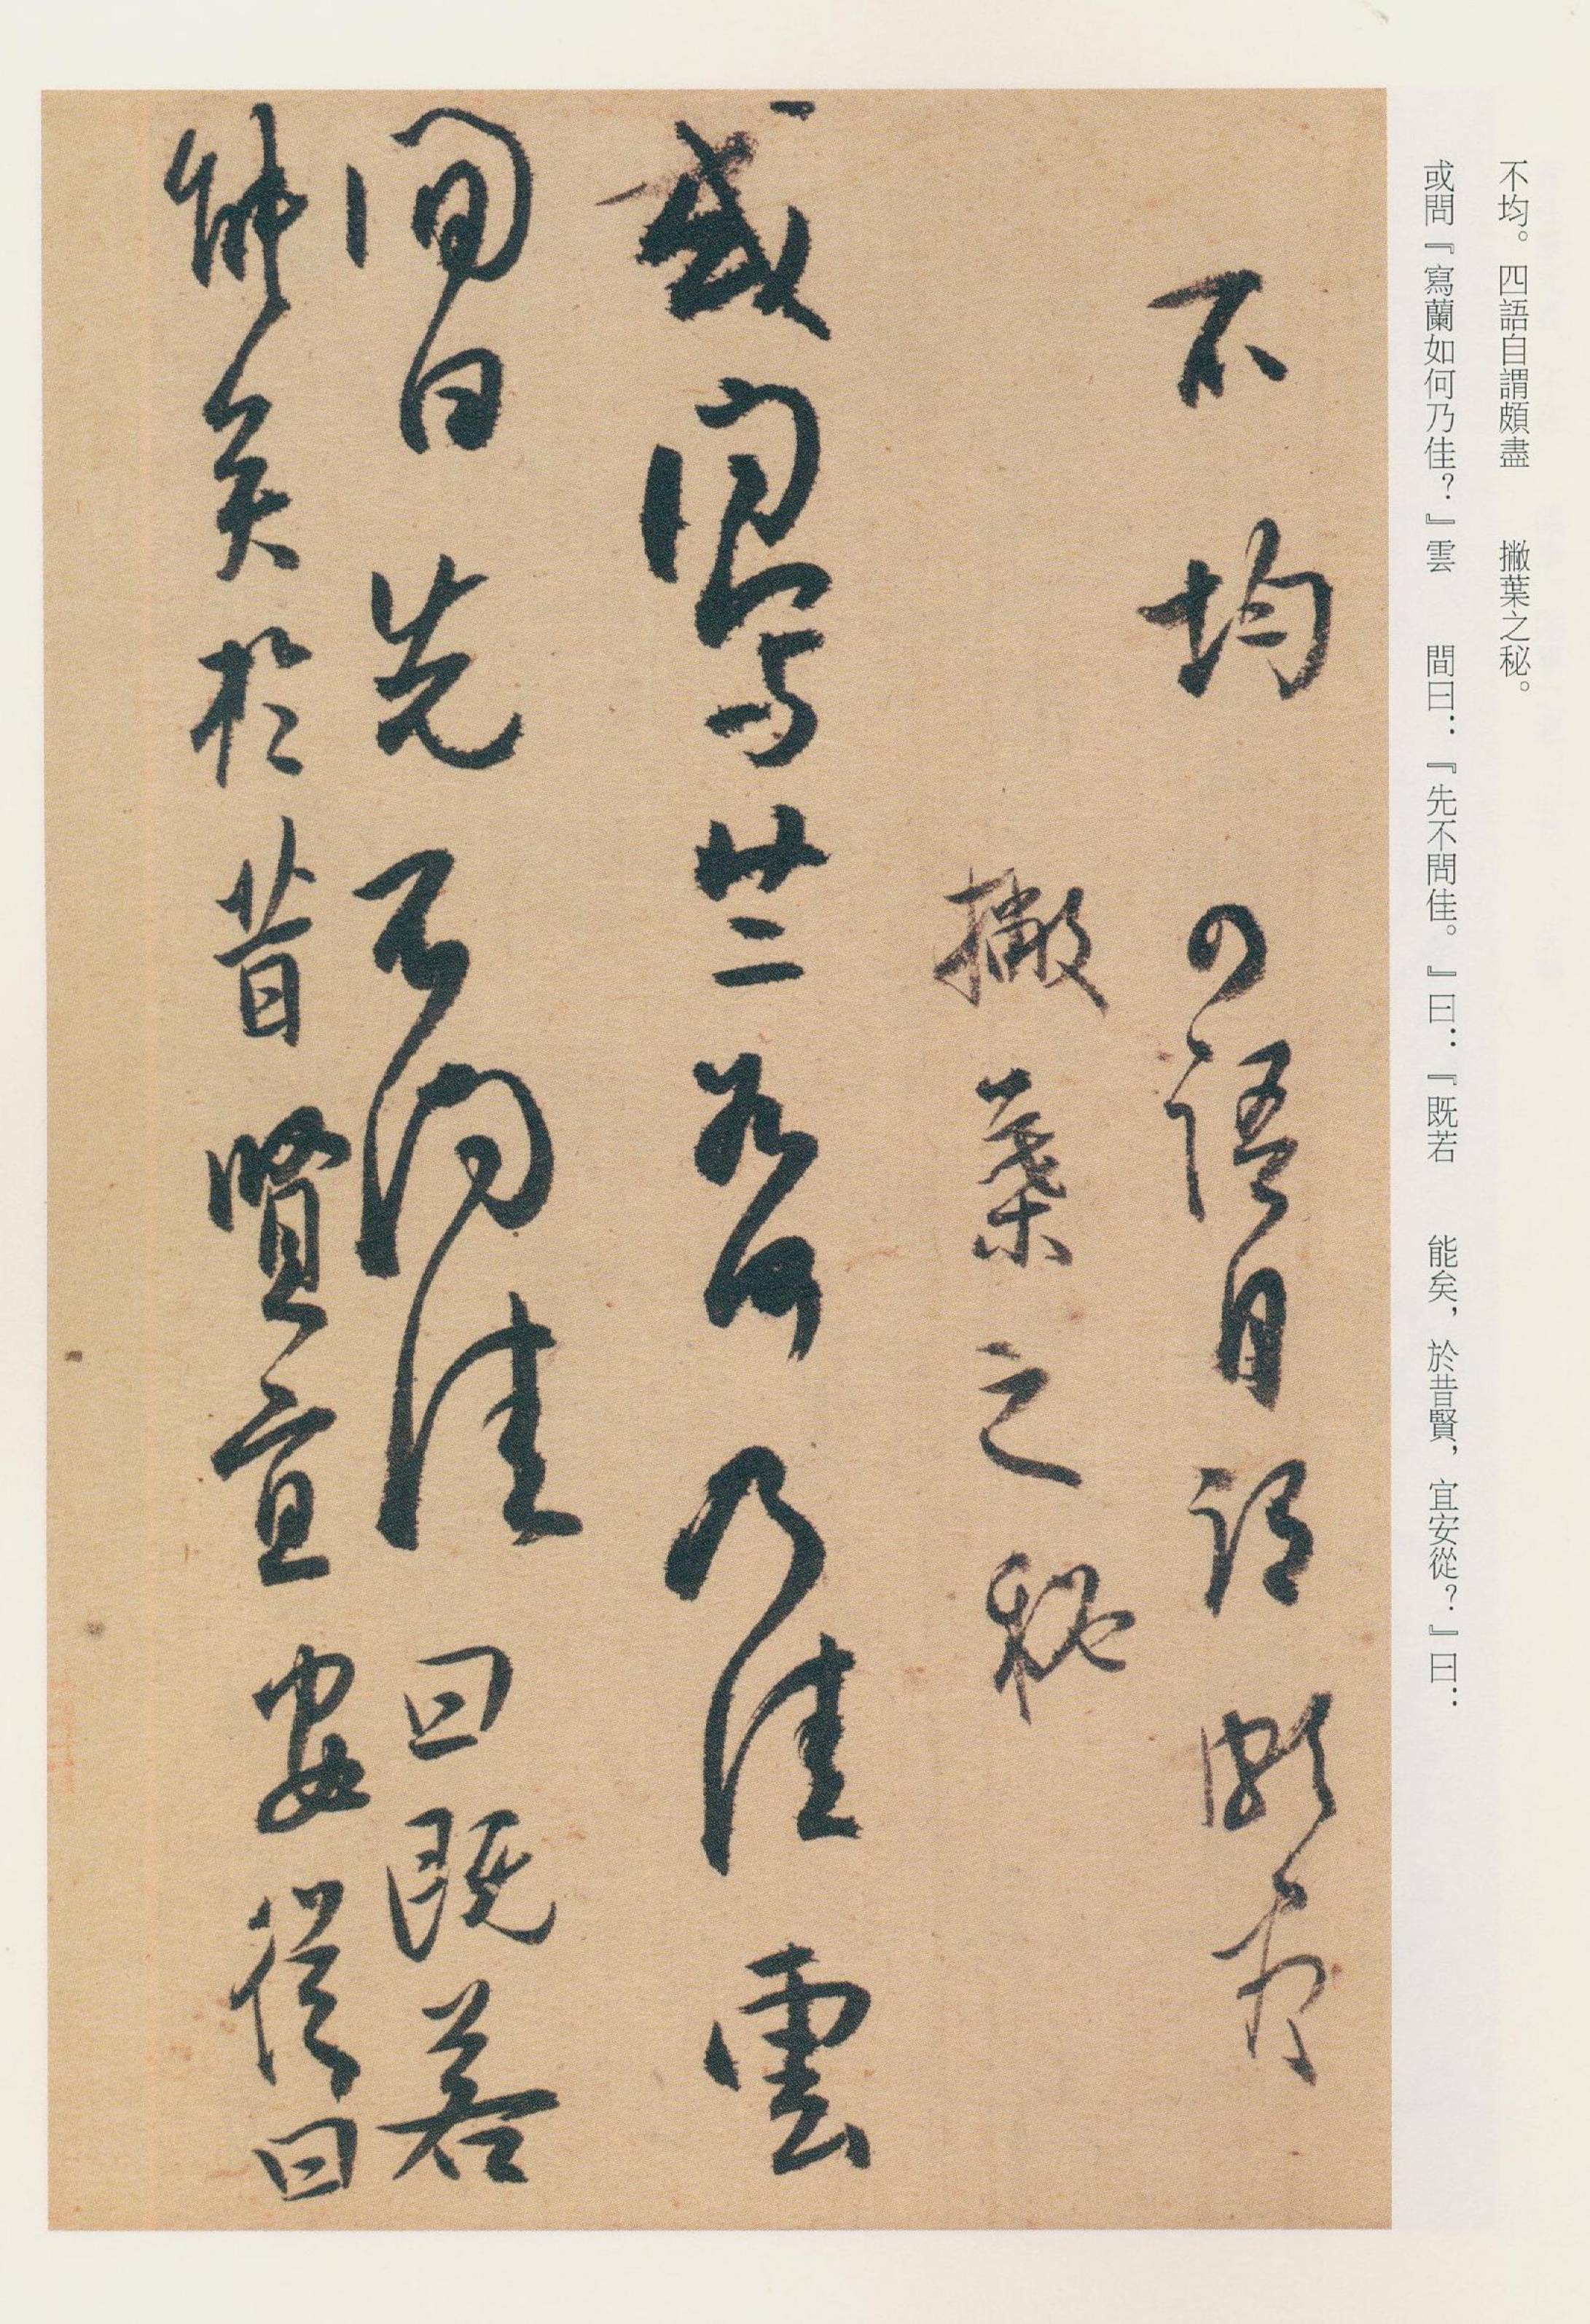 不均。四語自謂頗盡　撇葉之秘。
或問『寫蘭如何乃佳？』雲　間曰：『先不問佳。』曰：『既若　能矣，於昔賢，宜安從？』曰：
不均四語自謂頗盡
撇葉之秘
或問寫蘭如何乃佳雲
間曰先不問佳曰既若
能矣於昔賢宜安從曰